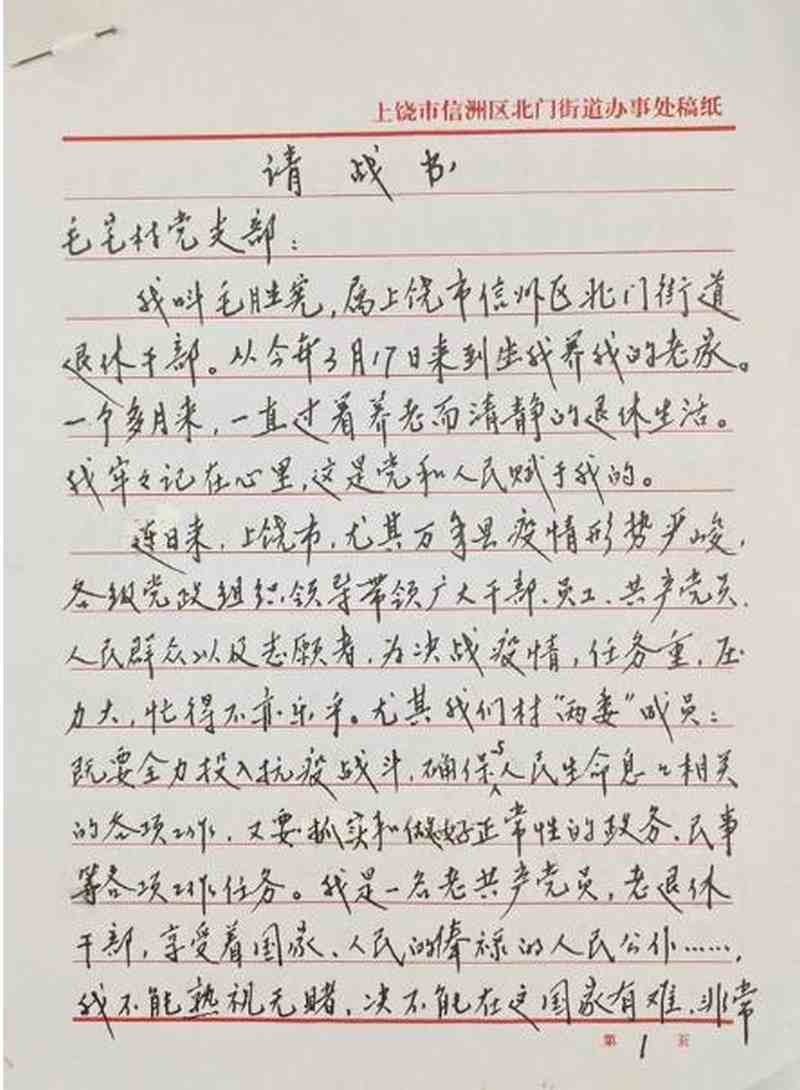 上饶市信洲区北门街道办事处稿纸
请战书
毛家村党支部：
我叫毛胜宪，属上饶市信州区北门街道
退休干部。从今年3月17日来到生我养我的老家。
一个多月来，一直过着养老而清静的退休生活。
我牢々记在心里，这是党和人民赋于我的。
连日来，上饶市，尤其万年县疫情形势严峻，
各级党政组织领导带领广大干部、员工、共产党员、
人民群众以及志愿者，为决战疫情，任务重，压
力大，忙得不亦乐乎。尤其我们村“两委”成员：
既要全力投入抗疫战斗，确保与人民生命息々相关
的各项工作，又要抓实和做好正常性的政务、民事
等各项工作任务。我是一名老共产党员，老退休
干部，享受着国家、人民的俸禄的人民公仆……，
我不能熟视无赌，决不能在这国家有难、非常
第1页